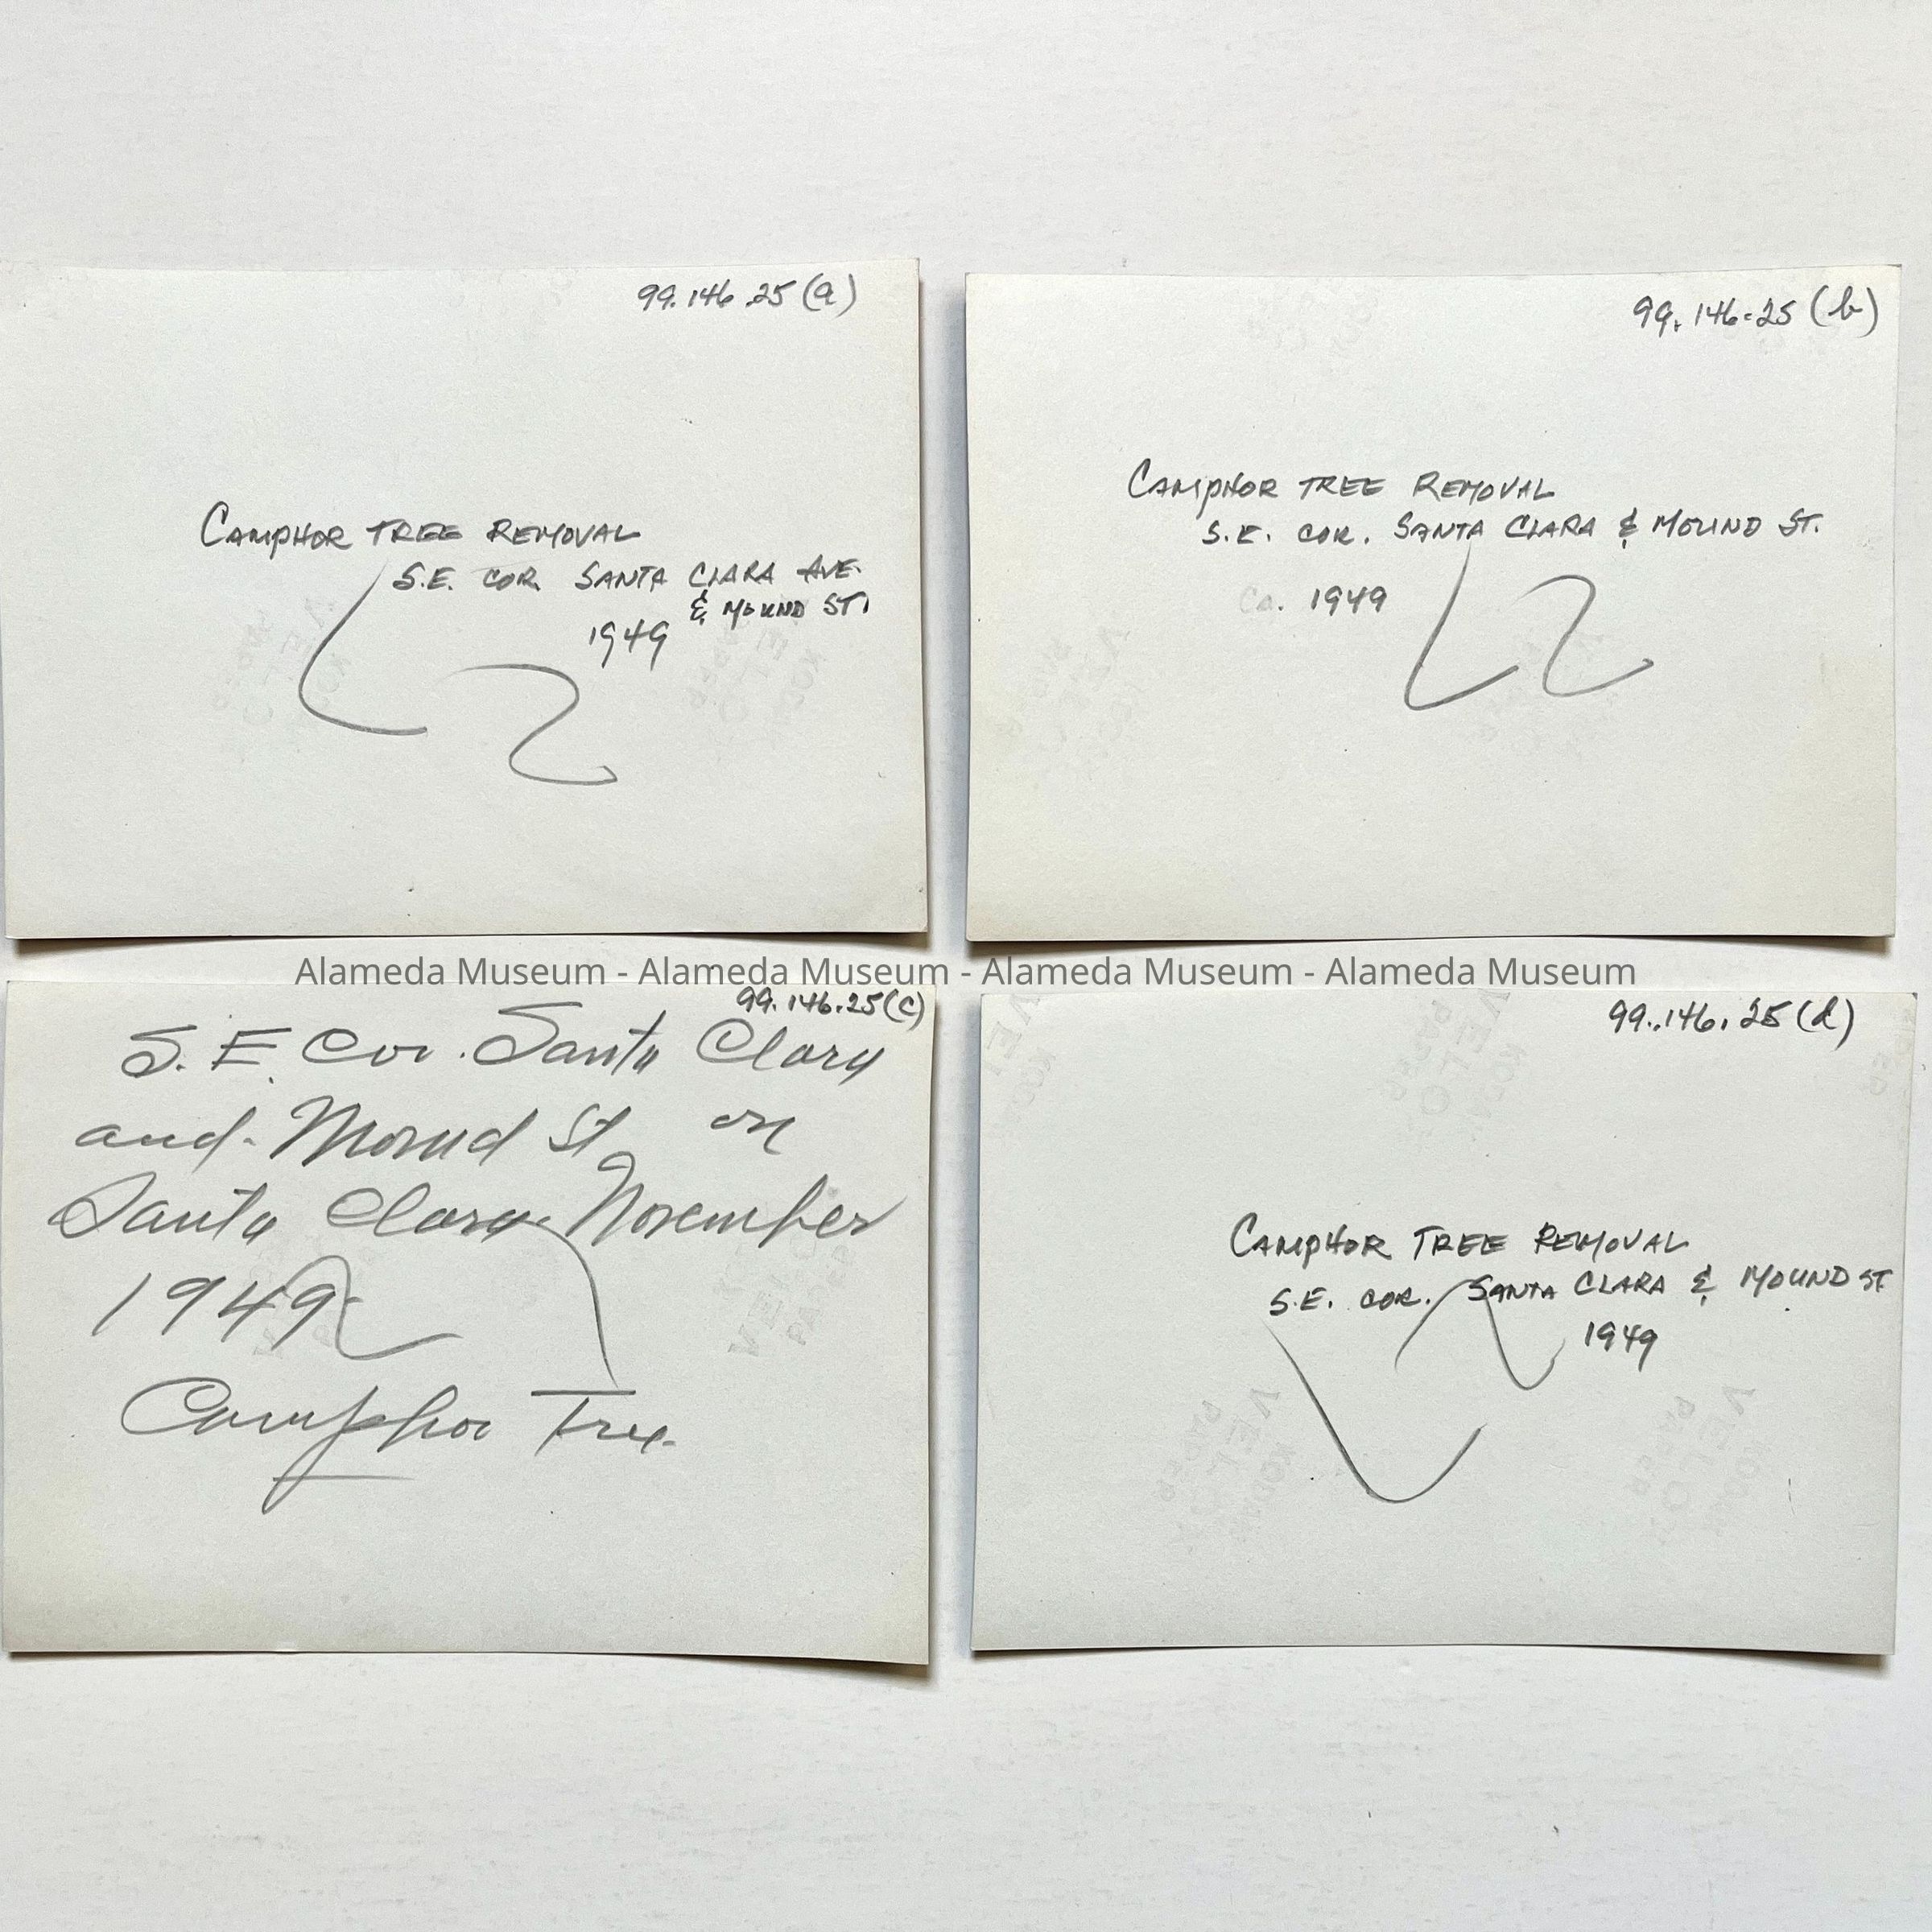 99.146.25 (a)
CAMPHOR TREE REMOVAL
S.E. COR. SANTA CLARA AVE.
& MOUND ST.
1949
99.146.25 (b)
CAMPHOR TREE REMOVAL
S.E. COR. SANTA CLARA & MOUND ST.
Ca. 1949
Alameda Museum - Alameda Museum - Alameda Museum - Alameda Museum
99.146.25(c)
S.E. Cor. Santa Clara
and Mound St on
Santa Clara November
1949
Camphor Tree
99.146.25(d)
CAMPHOR TREE REMOVAL
S.E. COR. SANTA CLARA & MOUND ST.
1949